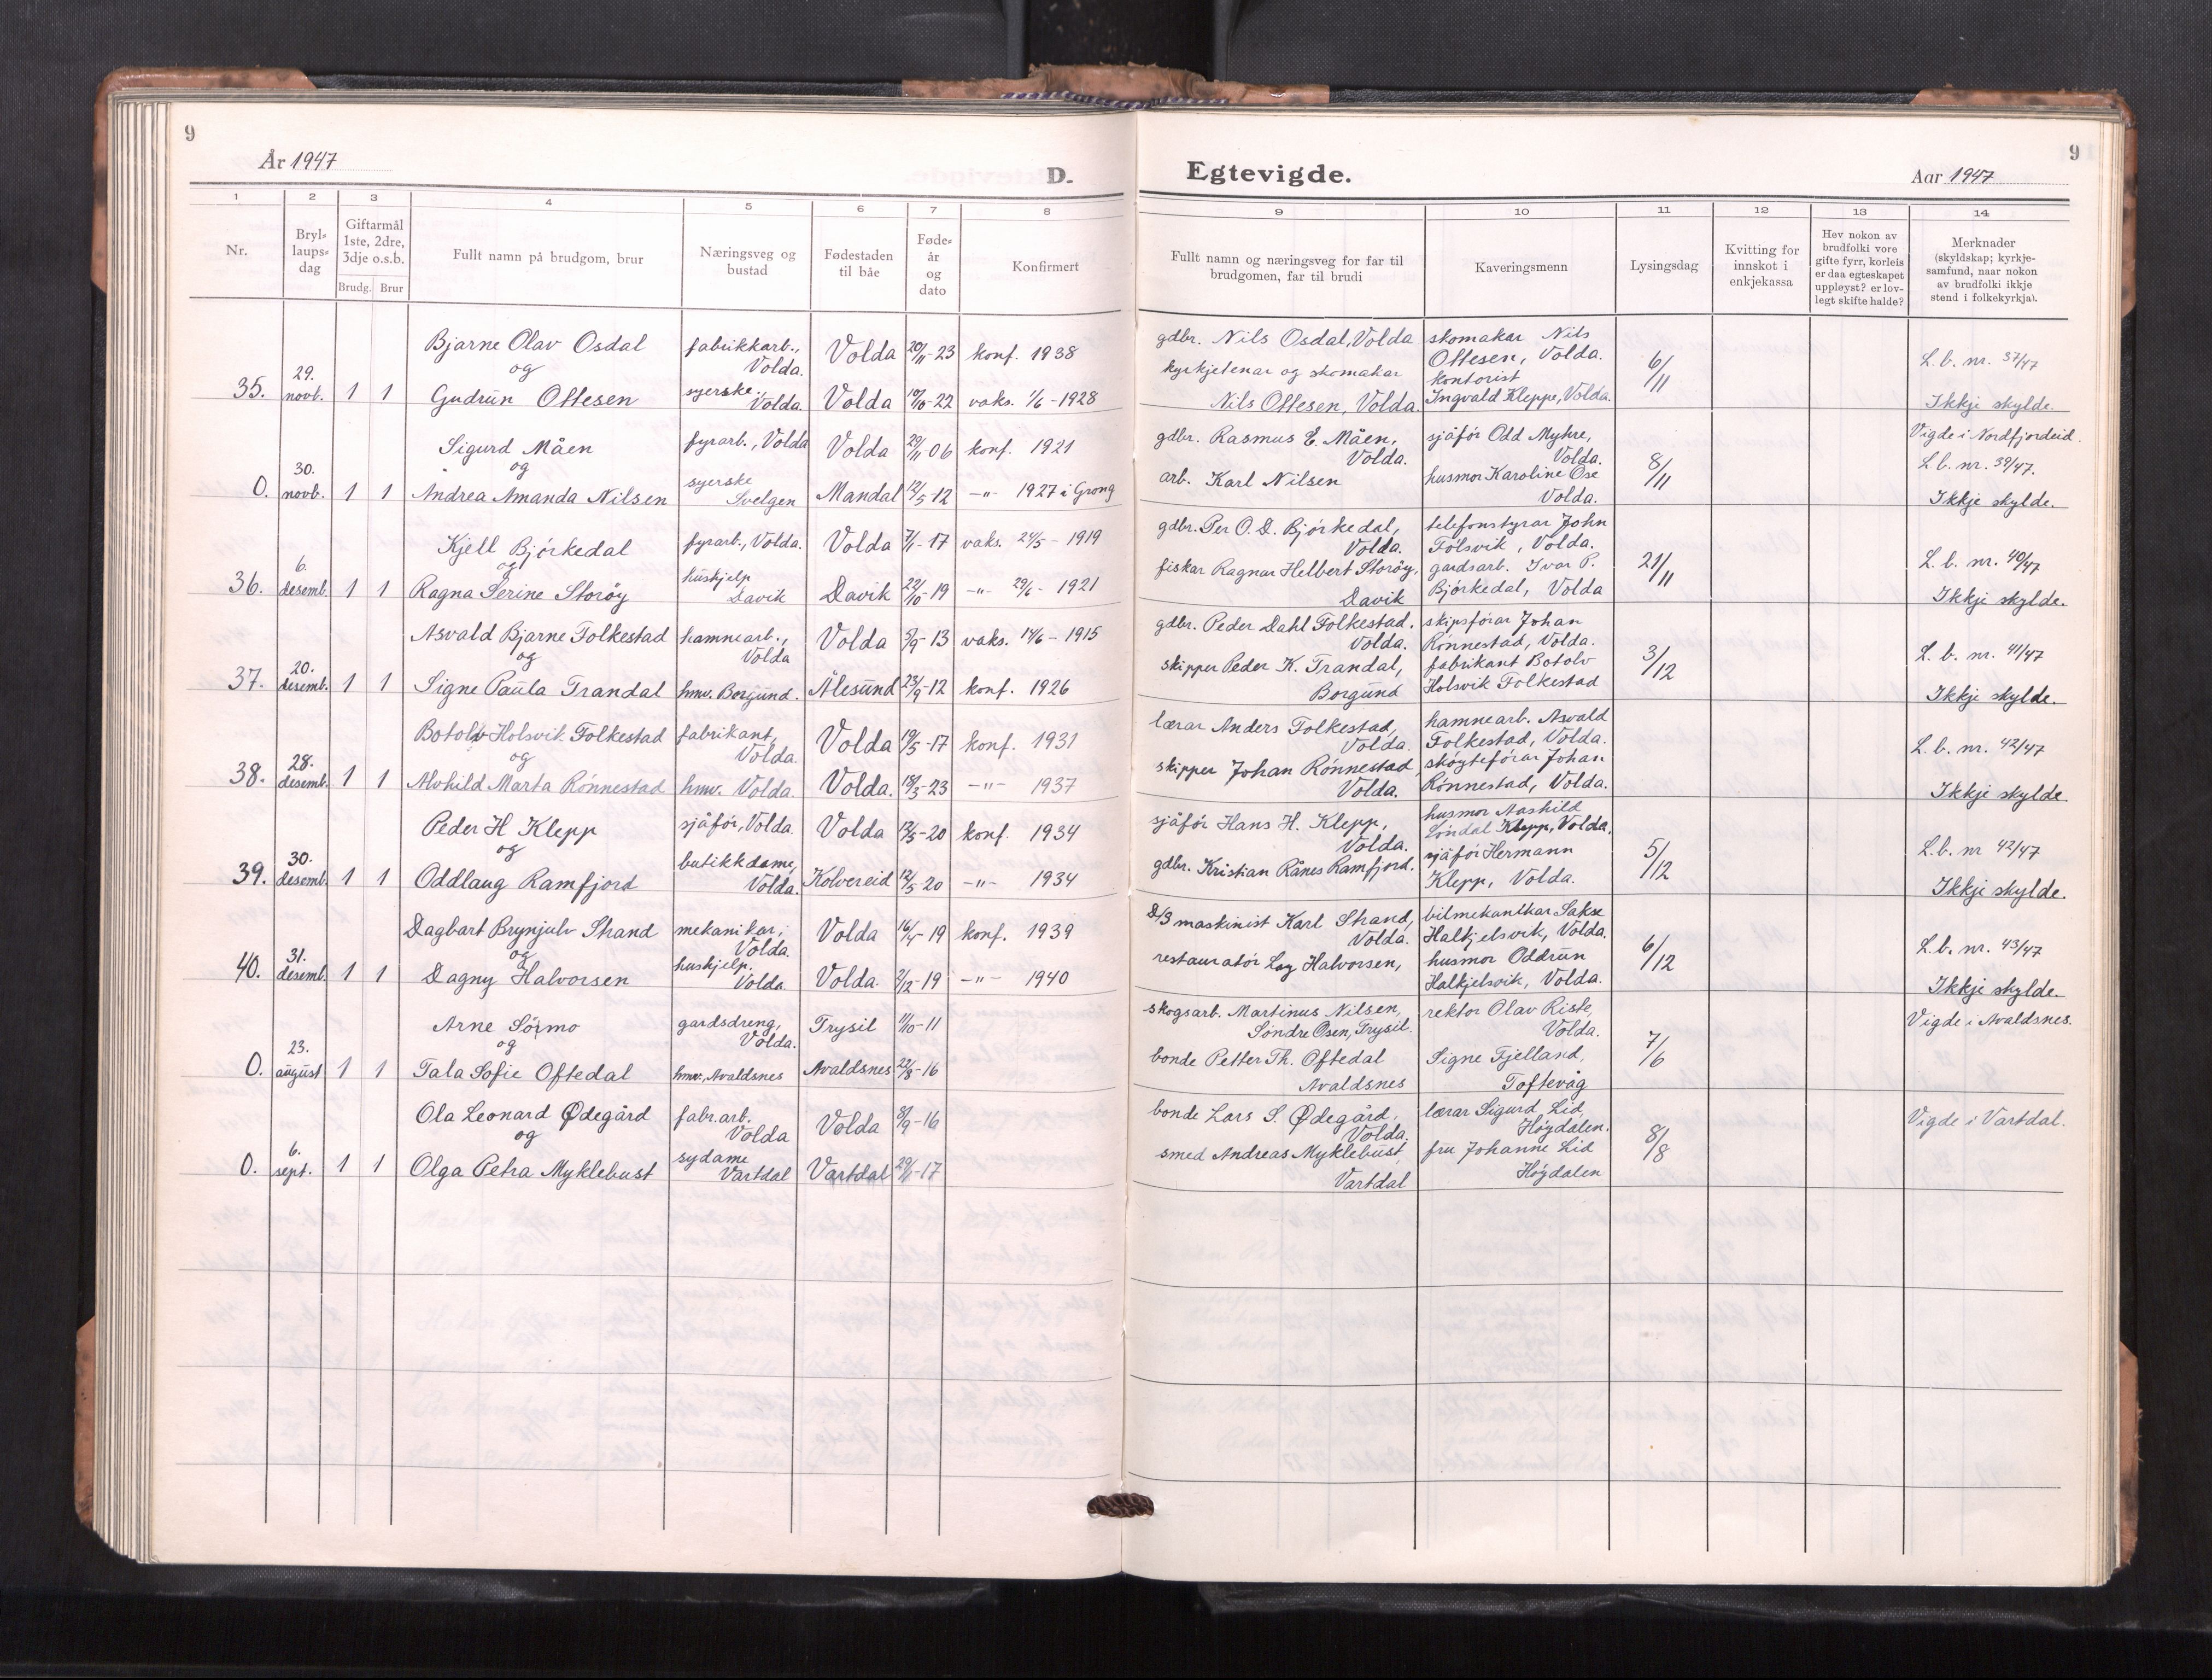 9
År 1947
D.
Egtevigde.
Aar 1947
9
1 2 3 4 5 6 7 8 9 10 11 12 13 14
Nr.
Bryl-
laups-
dag
Giftarmål
1ste, 2dre,
3dje o.s.b.
Brudg. Brur
Fullt namn på brudgom, brur
Næringsveg og
bustad
Fødestaden
til båe
Føde-
år
og
dato
Konfirmert
Fullt namn og næringsveg for far til
brudgomen, far til brudi
Kaveringsmenn
Lysingsdag
Kvitting for
innskot i
enkjekassa
Hev nokon av
brudfolki vore
gifte fyrr, korleis
er daa egteskapet
uppløyst? er lov-
legt skifte halde?
Merknader
(skyldskap; kyrkje-
samfund, naar nokon
av brudfolki ikkje
stend i folkekyrkja).
35.
29.
novb.
1 1
Bjarne Olav Osdal
og
Gudrun Ottesen
fabrikkarb.,
Volda.
syerske.
Volda.
Volda
Volda
20/11-23
10/10-22
konf. 1938
vaks. 1/6-1928
gdbr. Nils Osdal, Volda
kyrkjetenar og skomakar
Nils Ottesen, Volda.
skomakar Nils
Ottesen, Volda.
kontorist
Ingvald Kleppe, Volda.
6/11
L. b. nr. 37/47
Ikkje skylde.
0.
30.
novb.
1 1
Sigurd Måen
og
Andrea Amanda Nilsen
fyrarb., Volda
syerske
Svelgen
Volda
Mandal
29/11-06
12/5-12
konf. 1921
-"- 1927 i Grong
gdbr. Rasmus E. Måen,
Volda.
arb. Karl Nilsen
sjåfór Odd Myhre,
Volda.
husmor Karoline Ose
Volda.
8/11
Vigde i Nordfjordeid.
L b. nr. 39/47.
Ikkje skylde.
36.
6.
desemb.
1 1
Kjell Bjórkedal
og
Ragna Serine Storóy
fyrarb., Volda.
huskjelp
Davik
Volda
Davik
7/1-17
22/10-19
vaks. 24/5-1919
-"- 29/6-1921
gdbr. Per O. D. Bjórkedal,
Volda.
fiskar Ragnar Helbert Storóy,
Davik
telefonstyrar John
Fólsvik, Volda.
gardsarb. Ivar P.
Bjórkedal, Volda
21/11
L. b. nr. 40/47
Ikkje skylde.
37.
20.
desemb.
1 1
Asvald Bjarne Folkestad
og
Signe Paula Trandal
hamnearb.,
Volda
hmv. Borgund.
Volda
Ålesund
5/9-13
23/9-12
vaks. 14/6-1915
konf. 1926
gdbr. Peder Dahl Folkestad.
Volda.
skipper Peder K. Trandal,
Borgund
skipsfórar Johan
Rónnestad, Volda.
fabrikant Botolv
Holsvik Folkestad
3/12
L. b. nr. 41/47
Ikkje skylde.
38.
28.
desemb.
1 1
Botolv Holsvik Folkestad
og
Alvhild Marta Rónnestad
fabrikant,
Volda.
hmv. Volda.
Volda
Volda.
19/5-17
18/3-23
konf. 1931
-"- 1937
lærar Anders Folkestad,
Volda.
skipper Johan Rónnestad,
Volda.
hamnearb. Asvald
Folkestad, Volda.
skóytefórar Johan
Rónnestad, Volda.
L. b. nr. 42/47
Ikkje skylde.
39.
30.
desemb.
1 1
Peder H Klepp
og
Oddlaug Ramfjord
sjåfór, Volda.
butikkdame,
Volda.
Volda
Kolvereid
12/5-20
konf. 1934
-"- 1934
sjåfór Hans H. Klepp,
Volda.
gdbr. Kristian Rånes Ramfjord.
husmor Aashild
Lóndal Klepp, Volda.
sjåfór Hermann
Klepp, Volda.
5/12
L. b. nr 42/47
Ikkje skylde.
40.
31.
desemb.
1 1
Dagbart Brynjulv Strand
og
Dagny Halvorsen
mekanikar,
Volda.
huskjelp.
Volda
Volda
Volda.
16/4-19
2/12-19
konf. 1939
-"- 1940
D/S maskinist Karl Strand,
Volda.
restauratór Halvorsen,
bilmekanikar Sakse
Halkjelsvik, Volda.
husmor Oddrun
Halkjelsvik, Volda.
6/12
L. b. nr. 43/47
Ikkje skylde.
0.
23.
august
1 1
Arne Sórmo
og
Tala Sofie Oftedal
gardsdreng,
Volda.
hmv., Avaldsnes
Trysil
Avaldsnes
11/10-11
22/8-16
skogsarb. Martinus Nilsen,
Sóndre Osen, Trysil.
bonde Petter Th. Oftedal
Avaldsnes
rektor Olav Riste,
Volda.
Signe Fjelland,
Toftevåg
7/6
Vigde i Avaldsnes.
0.
6.
sept.
1 1
Ola Leonard Ødegård
og
Olga Petra Myklebust
fabr.arb.
Volda
sydame
Vartdal
Volda
Vartdal
8/9-16
29/1-17
bonde Lars S. Ødegård,
Volda.
smed Andreas Myklebust,
Vartdal
lærar Sigurd Lid,
Hógdalen.
fru Johanne Lid
Hógdalen
8/8
Vigde i Vartdal.